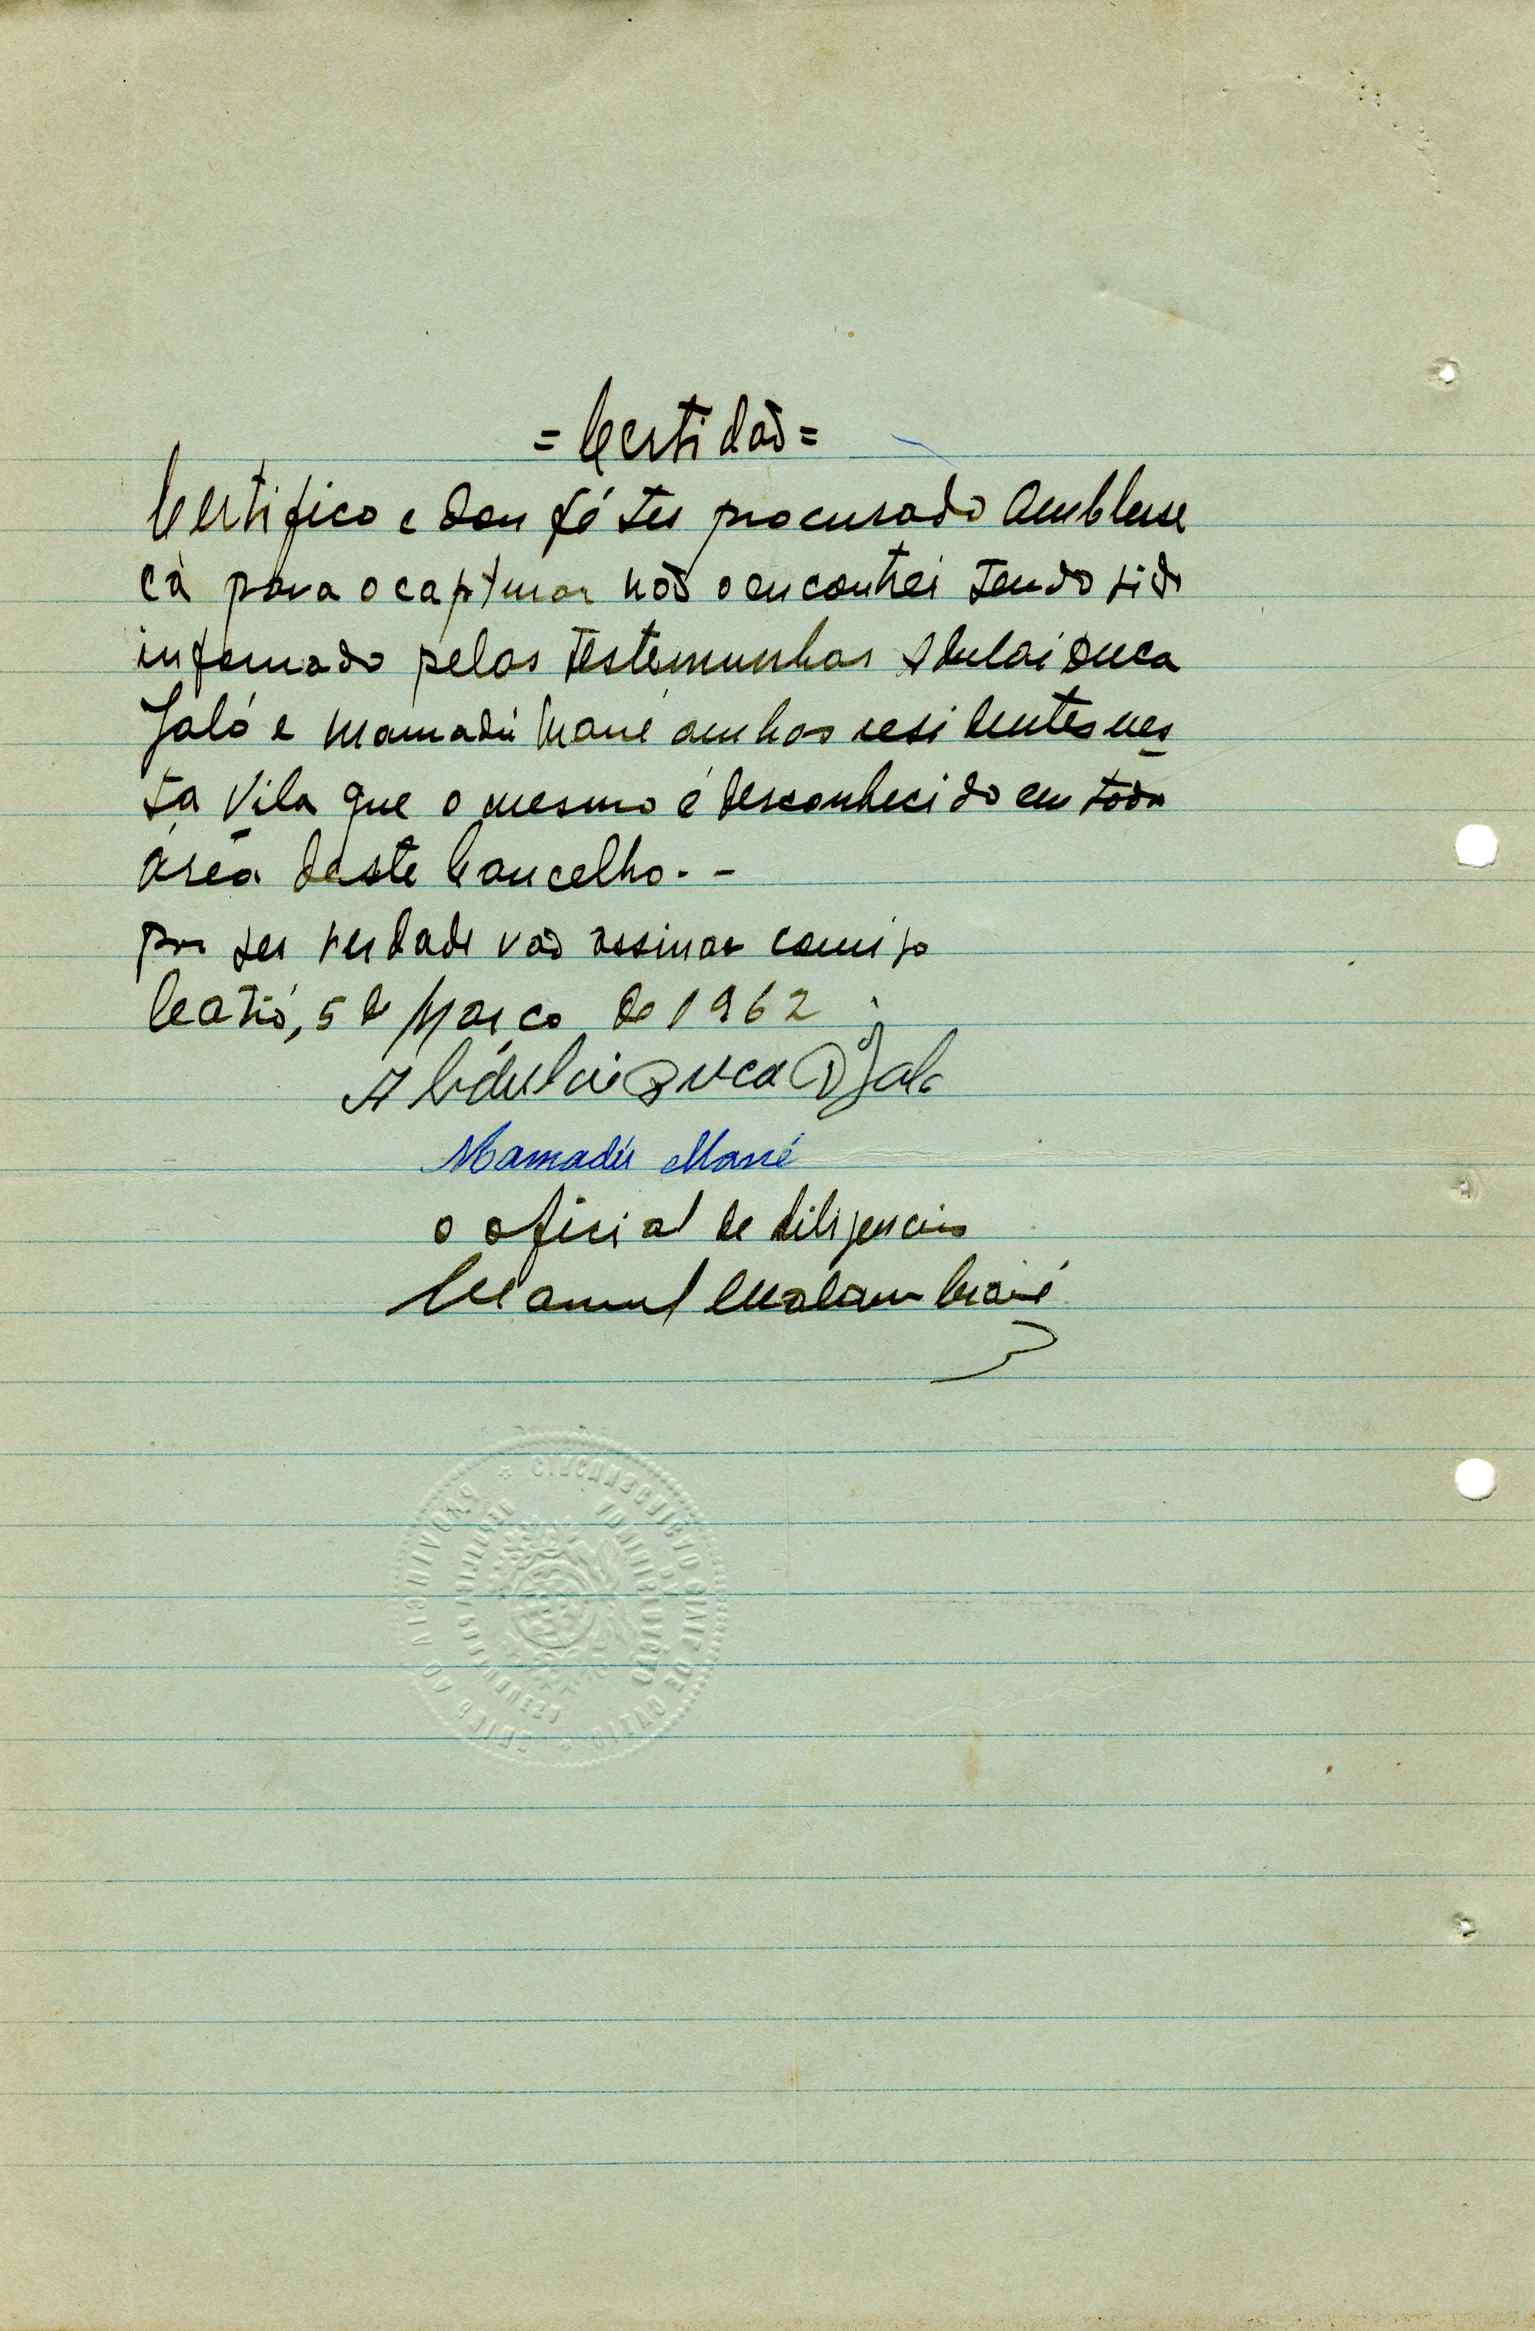 = Certidão =
Certifico e dou fé ter procurado Amblense
cà para o capturar não o encontrei tendo sido
informado pelas testemunhas Abulai Duca
Jaló e Mamadú Mané ambos residentes nes
ta Vila que o mesmo é desconhecido em toda
área deste Concelho. -
por ser verdade vão assinar comigo
Catió, 5 de Março de 1962
Abdulai Duca Djaló
Mamadú Mané
o oficial de diligencias
Manuel Malam Mané
PROVINCIA DA GUINÉ * CIRCUNSCRIÇÃO CIVIL DE CATIÓ *